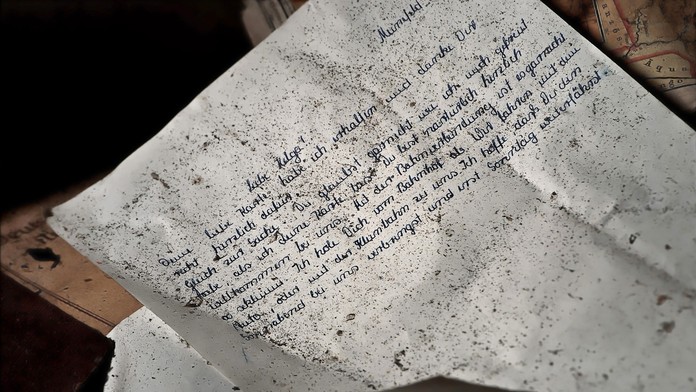 Liebe Helga!
Deine liebe Karte habe ich erhalten und danke Dir
recht herzlich dafür. Du glaubst garnicht wie ich mich gefreut
habe als ich deine Karte Du bist natürlich herzlich
Willkommen bei uns. Mit der Bahnverbindung ist es garnicht
so schlimm. Ich hole Dich vom Bahnhof ab. Wir fahren mit dem
Auto oder mit der Kleinbahn zu uns. Ich hoffe daß Du den
bei uns verbringst und erst Sonntag weiterfährst.